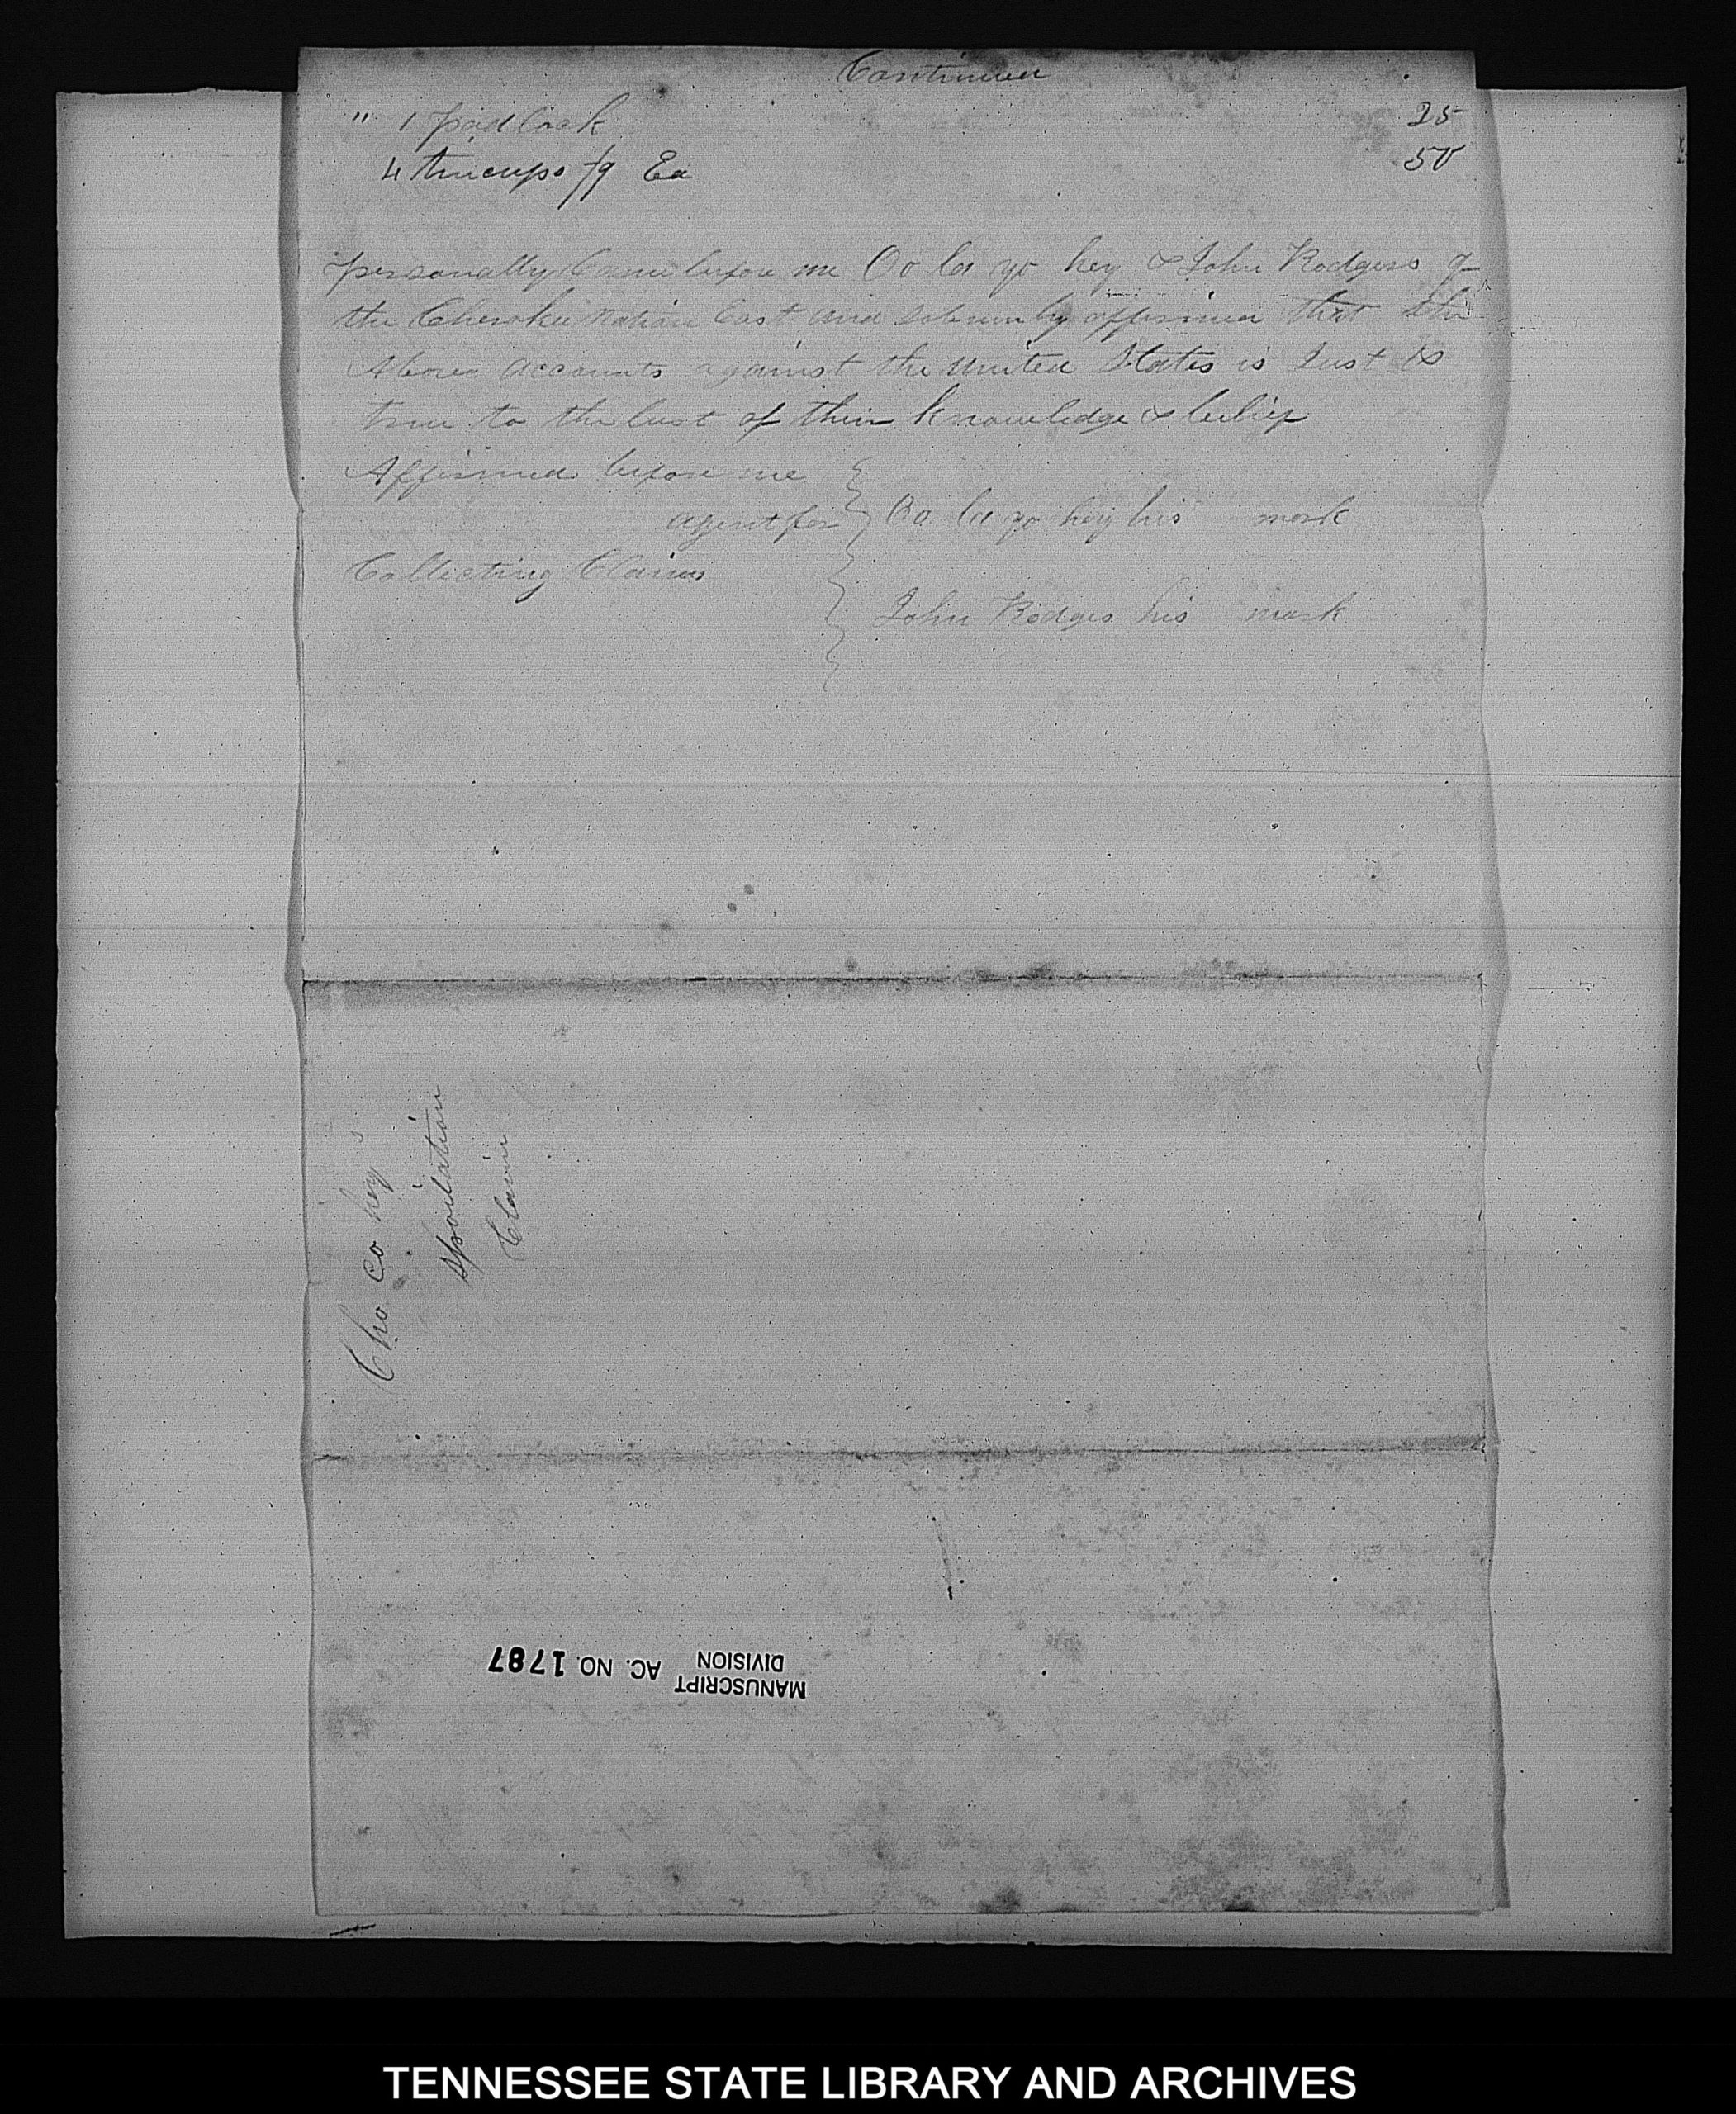 Continued
" 1 padlock 25
4 tincups /9 Ea 50
personally Came before me Oo la yo hey & John Rodgers of
the Cherokee Nation East and Solemnly affirmed that the
Above accounts against the United States is Just &
true to the best of their knowledge & belief
Affirmed before me
agent for
Collecting Claims
Oo la yo hey his mark
John Rodges his mark
Cho co hey s
Spoilation
Claim
MANUSCRIPT
DIVISION
AC. NO. 1787
TENNESSEE STATE LIBRARY AND ARCHIVES